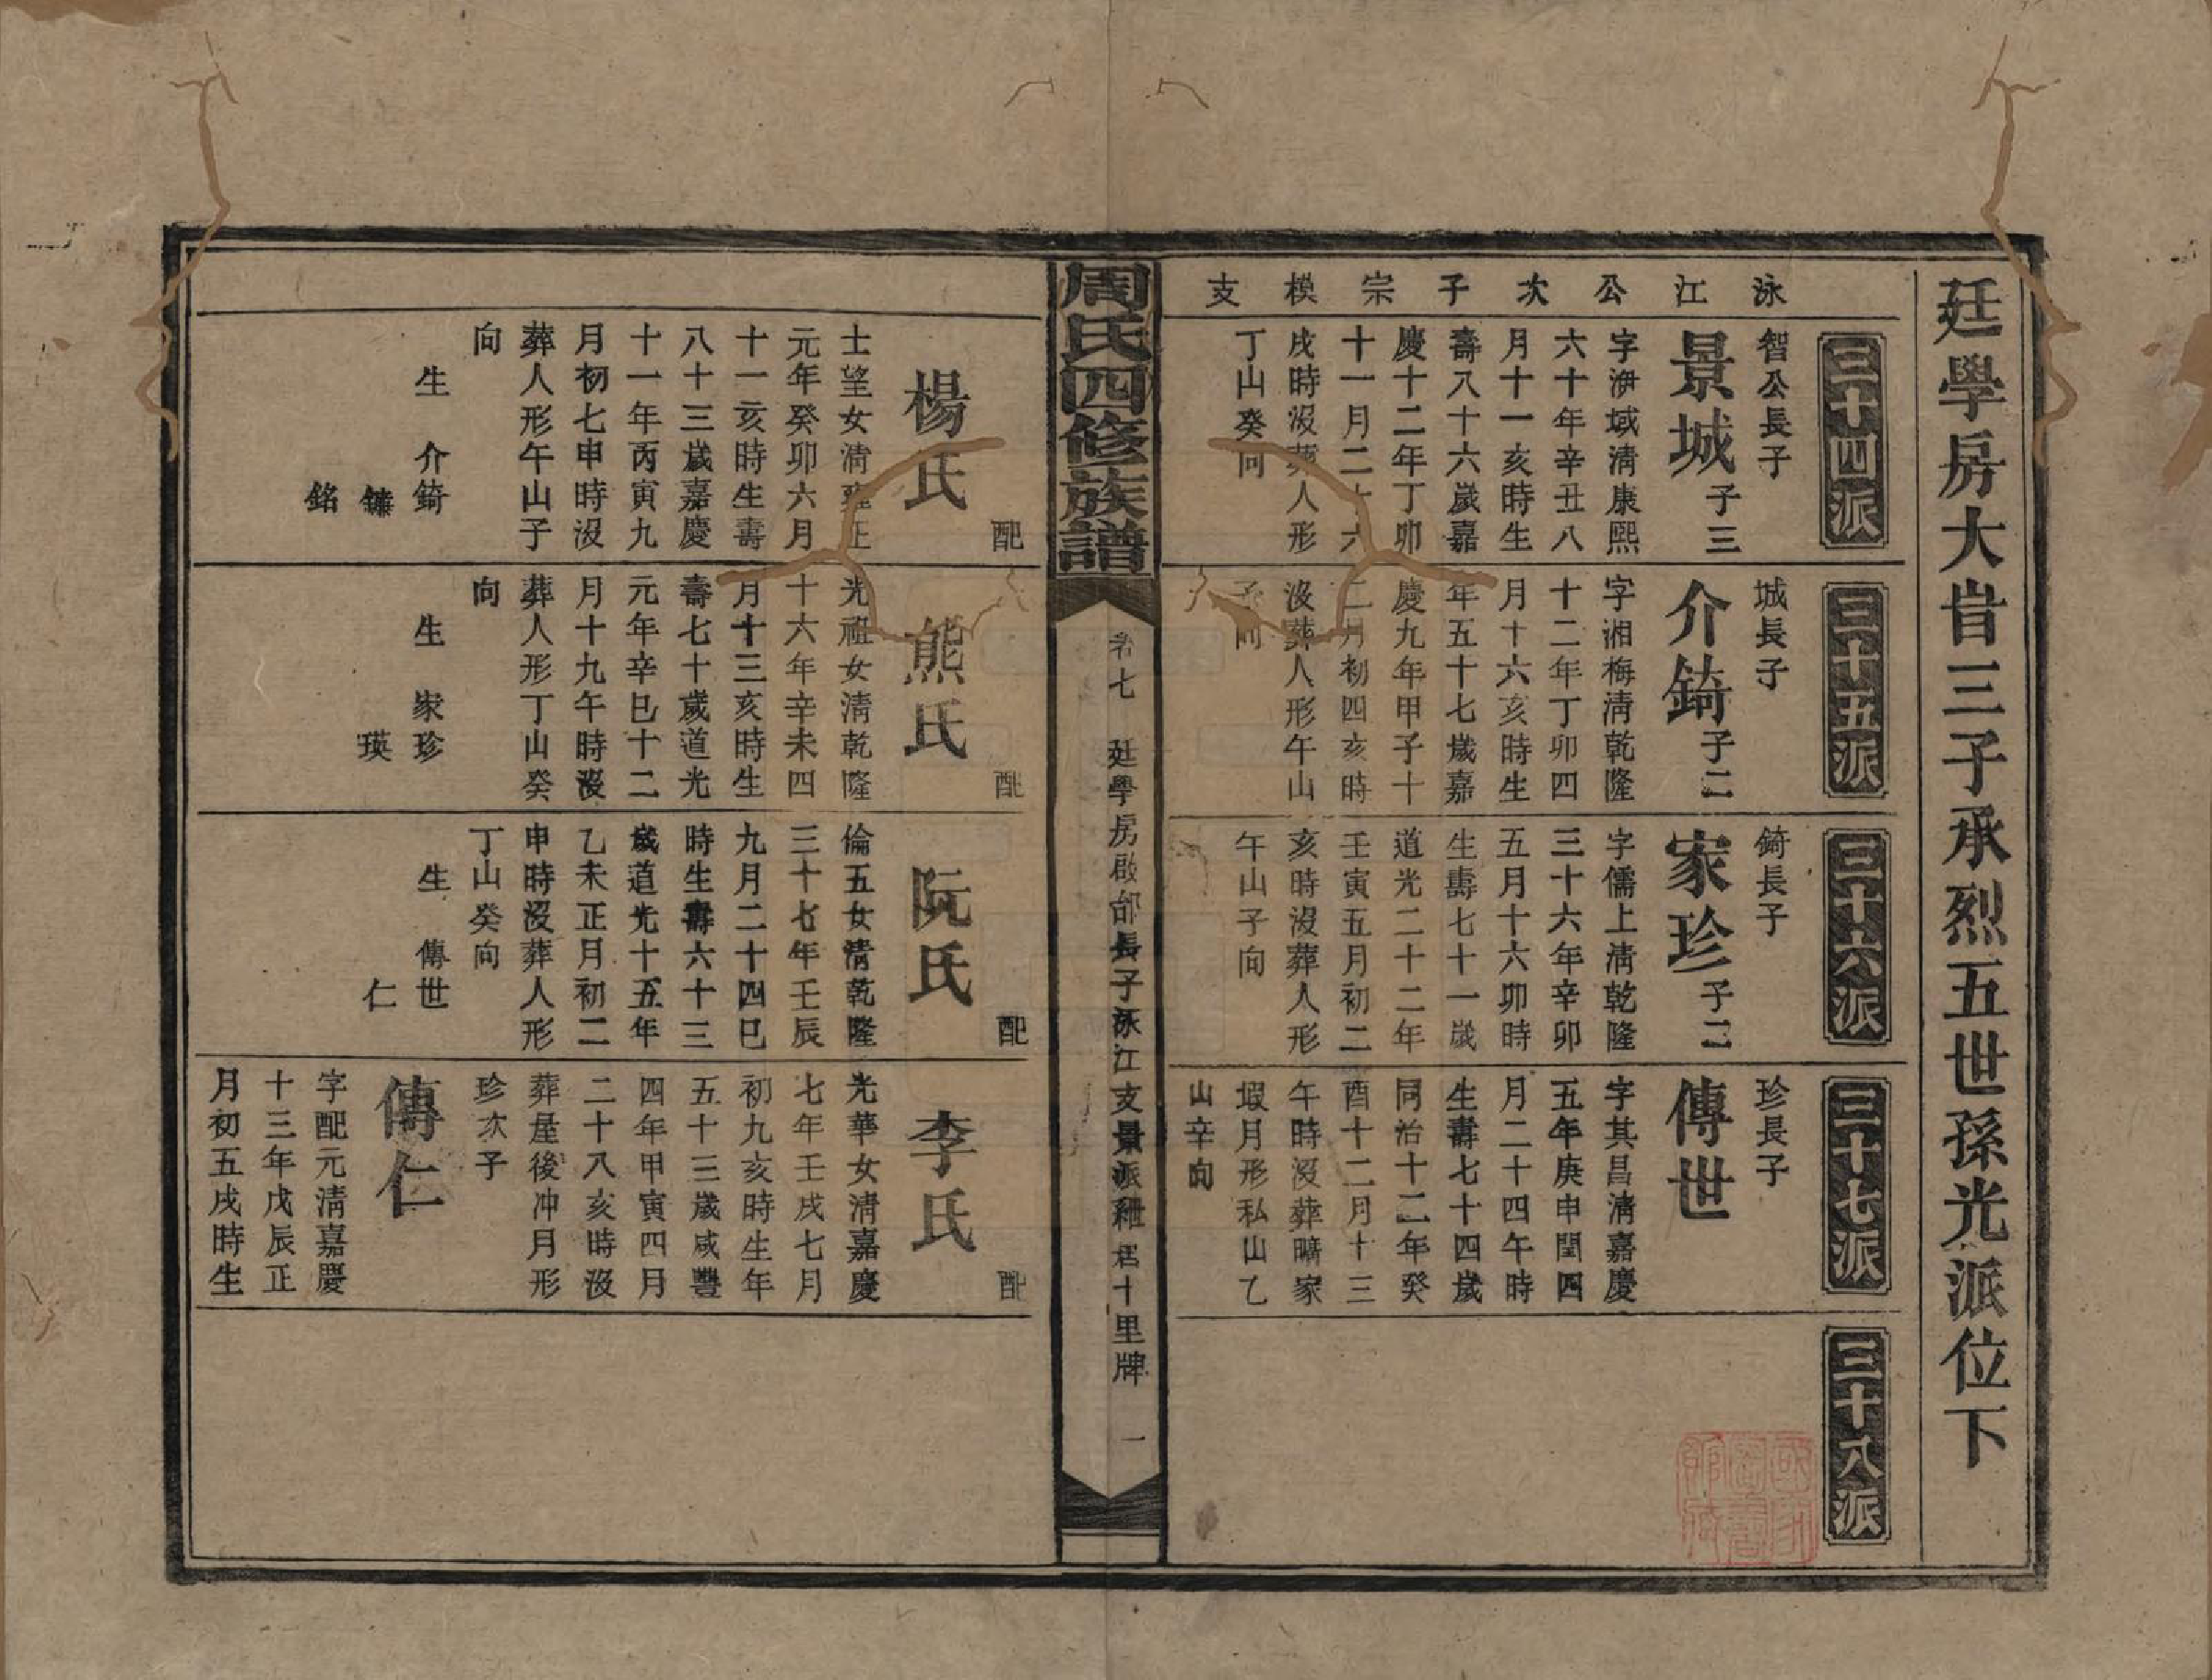 廷學房大旹三子承烈五世孫光派位下
泳江公次子宗模支
三十四派
智公長子
景城 子三
字洢域清康熙
六十年辛丑八
月十一亥時生
壽八十六歲嘉
慶十二年丁卯
十一月二十六
戌時沒葬人形
丁山癸向
三十五派
城長子
介錡 子二
字湘梅清乾隆
十二年丁卯四
月十六亥時生
年五十七歲嘉
慶九年甲子十
二月初四亥時
沒葬人形午山
子向
三十六派
錡長子
家珍 子二
字儒上清乾隆
三十六年辛卯
五月十六卯時
生壽七十一歲
道光二十二年
壬寅五月初二
亥時沒葬人形
午山子向
三十七派
珍長子
傳世
字其昌清嘉慶
五年庚申閏四
月二十四午時
生壽七十四歲
同治十二年癸
酉十二月十三
午時沒葬曠家
塅月形私山乙
山辛向
三十八派
周氏四修族譜
卷七
廷學房啟邰長子泳江支景派 居十里牌
一
配
楊氏
士望女清雍正
元年癸卯六月
十一亥時生壽
八十三歲嘉慶
十一年丙寅九
月初七申時沒
葬人形午山子
向
生 介錡
鏞
銘
配
熊氏
光祖女清乾隆
十六年辛未四
月十三亥時生
壽七十歲道光
元年辛巳十二
月十九午時沒
葬人形丁山癸
向
生 家珍
瑛
配
阮氏
倫五女清乾隆
三十七年壬辰
九月二十四巳
時生壽六十三
歲道光十五年
乙未正月初二
申時沒葬人形
丁山癸向
生 傳世
仁
配
李氏
光華女清嘉慶
七年壬戌七月
初九亥時生年
五十三歲咸豐
四年甲寅四月
二十八亥時沒
葬屋後冲月形
珍次子
傳仁
字配元清嘉慶
十三年戊辰正
月初五戌時生